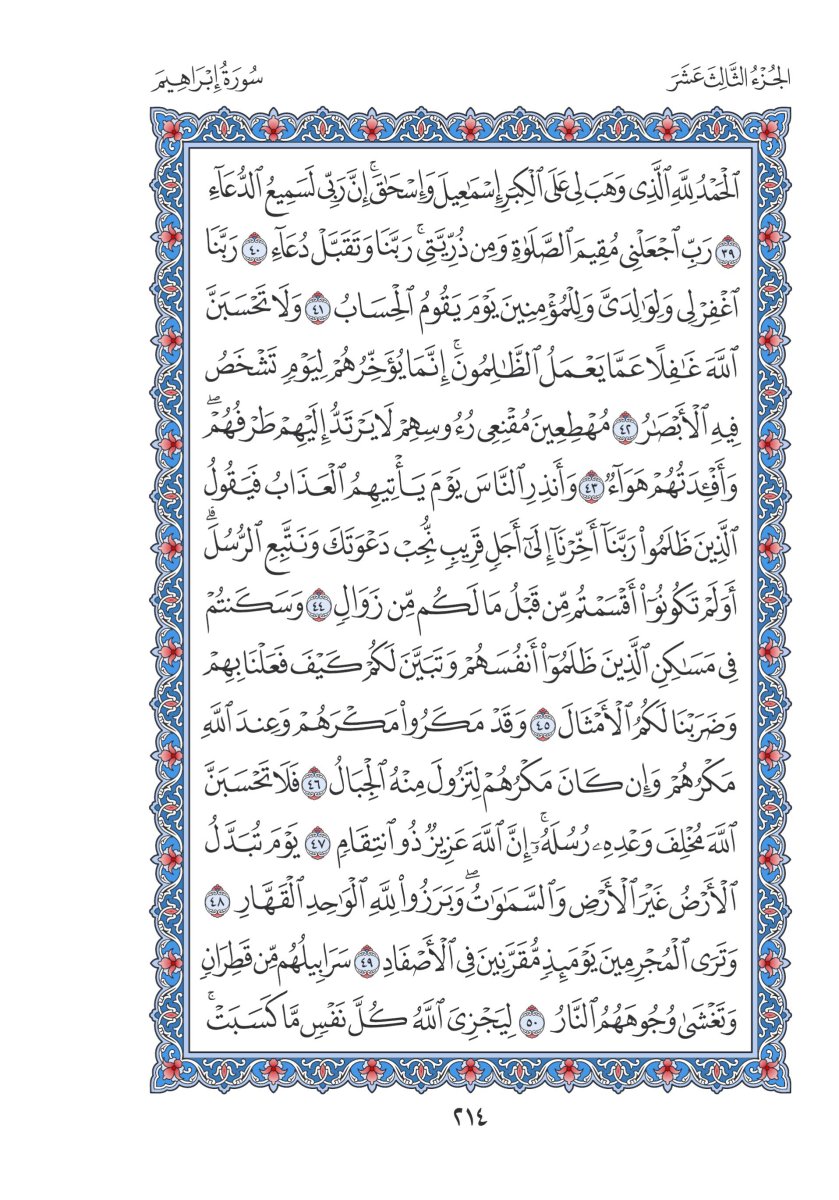 الجُزْءُ الثَّالِثَ عَشَرَ
سُورَةُ إِبْرَاهِيمَ
اَ۬لْحَمْدُ لِلَّهِ اِ۬لَّذِى وَهَبَ لِى عَلَى اَ۬لْكِبَرِ إِسْمَٰعِيلَ وَإِسْحَٰقَۚ إِنَّ رَبِّى لَسَمِيعُ اُ۬لدُّعَآءِ
٣٩ رَبِّ اِ۪جْعَلْنِى مُقِيمَ اَ۬لصَّلَوٰةِ وَمِن ذُرِّيَّتِىۚ رَبَّنَا وَتَقَبَّلْ دُعَآءِ ٤٠ رَبَّنَا
اَ۪غْفِرْ لِى وَلِوَٰلِدَىَّ وَلِلْمُؤْمِنِينَ يَوْمَ يَقُومُ اُ۬لْحِسَابُ ٤١ وَلَا تَحْسَبَنَّ
اَ۬للَّهَ غَٰفِلًا عَمَّا يَعْمَلُ اُ۬لظَّٰلِمُونَۚ إِنَّمَا يُؤَخِّرُهُمْ لِيَوْمٍ تَشْخَصُ
فِيهِ اِ۬لْأَبْصَٰرُ ٤٢ مُهْطِعِينَ مُقْنِعِى رُءُوسِهِمْ لَا يَرْتَدُّ إِلَيْهِمْ طَرْفُهُمْۖ
وَأَفْـِٔدَتُهُمْ هَوَآءٌ ٤٣ وَأَنذِرِ اِ۬لنَّاسَ يَوْمَ يَأْتِيهِمُ اُ۬لْعَذَابُ فَيَقُولُ
اُ۬لَّذِينَ ظَلَمُوا۟ رَبَّنَآ أَخِّرْنَآ إِلَىٰٓ أَجَلٍ قَرِيبٍ نُّجِبْ دَعْوَتَكَ وَنَتَّبِعِ اِ۬لرُّسُلَۗ
أَوَلَمْ تَكُونُوٓا۟ أَقْسَمْتُم مِّن قَبْلُ مَا لَكُم مِّن زَوَالٍ ٤٤ وَسَكَنتُمْ
فِى مَسَٰكِنِ اِ۬لَّذِينَ ظَلَمُوٓا۟ أَنفُسَهُمْ وَتَبَيَّنَ لَكُمْ كَيْفَ فَعَلْنَا بِهِمْ
وَضَرَبْنَا لَكُمُ اُ۬لْأَمْثَالَ ٤٥ وَقَدْ مَكَرُوا۟ مَكْرَهُمْ وَعِندَ اَ۬للَّهِ
مَكْرُهُمْ وَإِن كَانَ مَكْرُهُمْ لِتَزُولَ مِنْهُ اُ۬لْجِبَالُ ٤٦ فَلَا تَحْسَبَنَّ
اَ۬للَّهَ مُخْلِفَ وَعْدِهِۦ رُسُلَهُۥٓۚ إِنَّ اَ۬للَّهَ عَزِيزٌ ذُو اُ۪نتِقَامٍ ٤٧ يَوْمَ تُبَدَّلُ
اُ۬لْأَرْضُ غَيْرَ اَ۬لْأَرْضِ وَالسَّمَٰوَٰتُۖ وَبَرَزُوا۟ لِلَّهِ اِ۬لْوَٰحِدِ اِ۬لْقَهَّارِ ٤٨
وَتَرَى اَ۬لْمُجْرِمِينَ يَوْمَئِذٍ مُّقَرَّنِينَ فِى اِ۬لْأَصْفَادِ ٤٩ سَرَابِيلُهُم مِّن قَطِرَانٍ
وَتَغْشَىٰ وُجُوهَهُمُ اُ۬لنَّارُ ٥٠ لِيَجْزِىَ اَ۬للَّهُ كُلَّ نَفْسٍ مَّا كَسَبَتْۚ
٢١٤